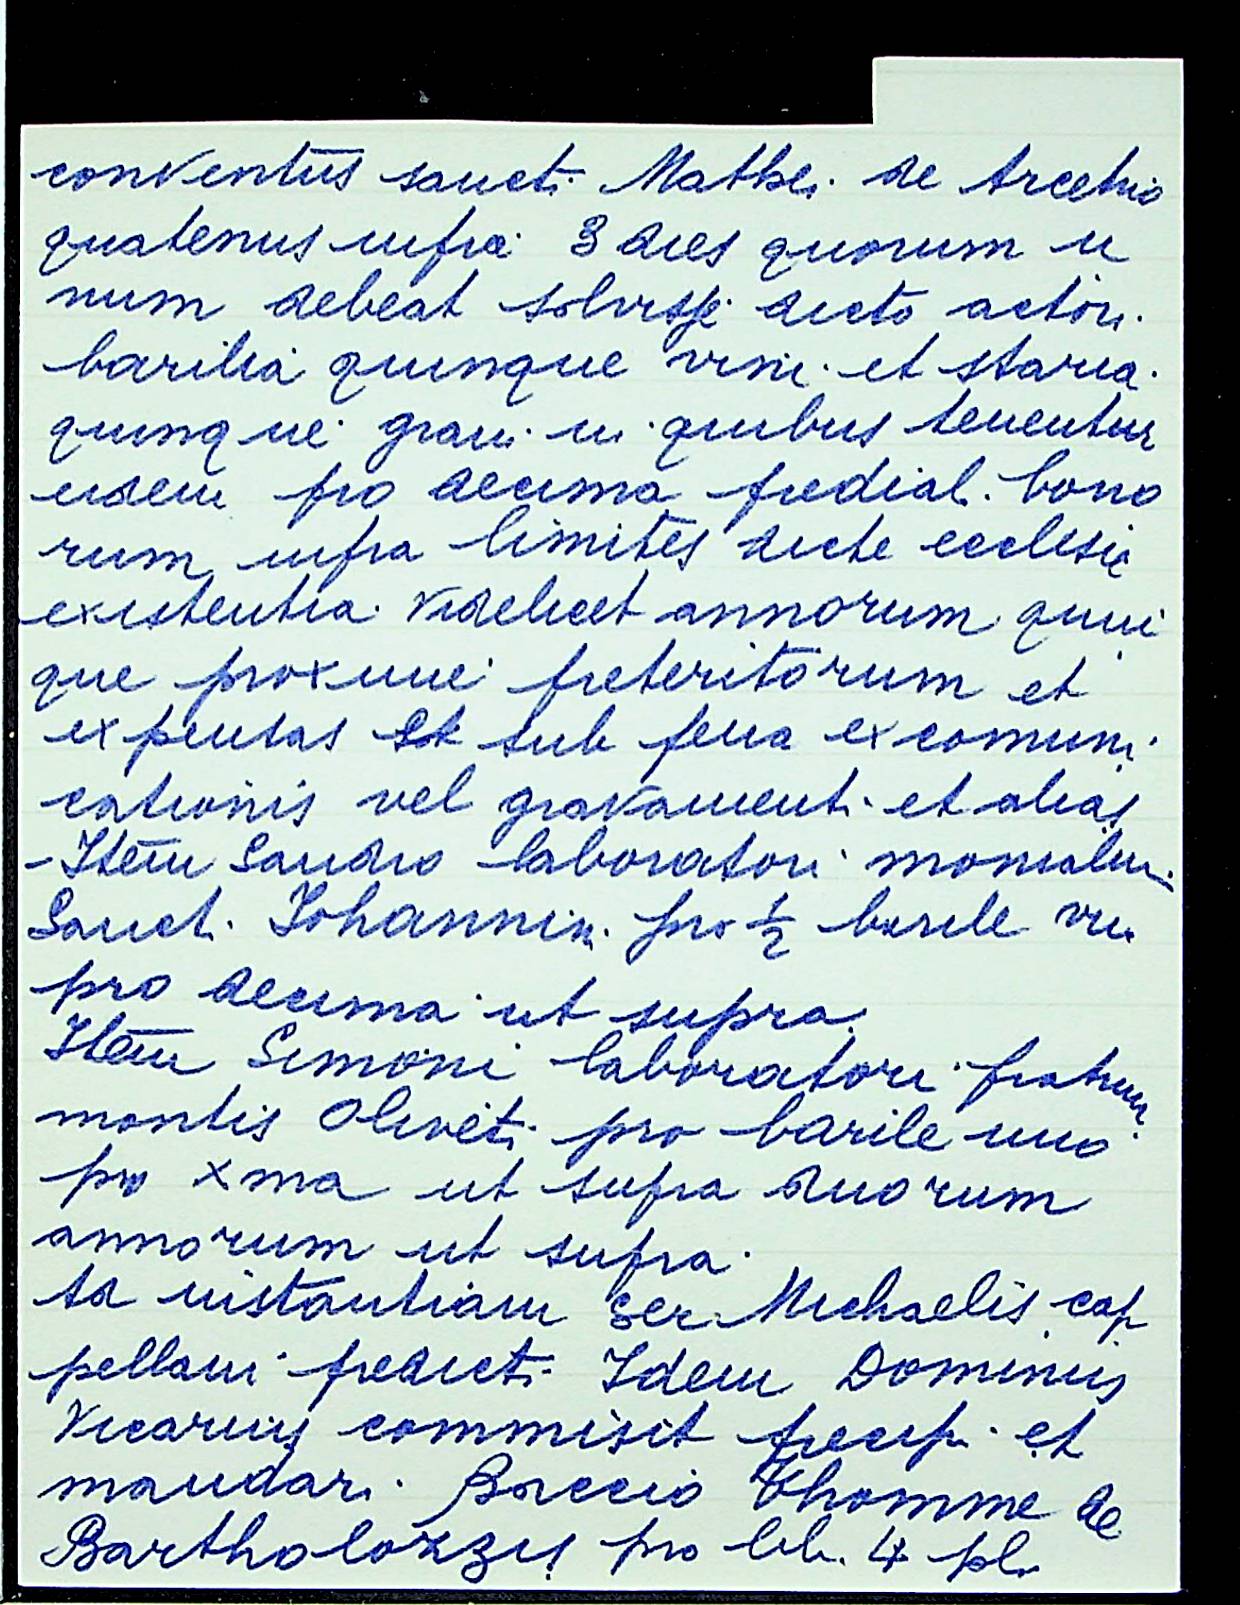 conventus sancti Mathei de Arcetrio
quatenus infra 3 dies quorum u
num debeat solvisse dicto actori
barilia quinque vini et staria
quinque grani in quibus tenentur
eidem pro decima predial. bono
rum infra limites dicte ecclesie
existentia videlicet annorum quin
que proxime preteritorum et
expensas et sub pena excomuni
cationis vel gravamenti et alias
- Item Sandro laboratori monialiu.
Sanct. Johannin. pro 1/2 barile vini
pro decima ut supra
Item Simoni laboratori fratrum
montis Oliveti pro barile uno
pro xma ut supra duorum
annorum ut supra.
Ad instantiam ser Michaelis cap
pellani predicti Idem Dominus
Vicarius commisit precipi et
mandari Baccio Thomme de
Bartholozzis pro lib. 4 pl.